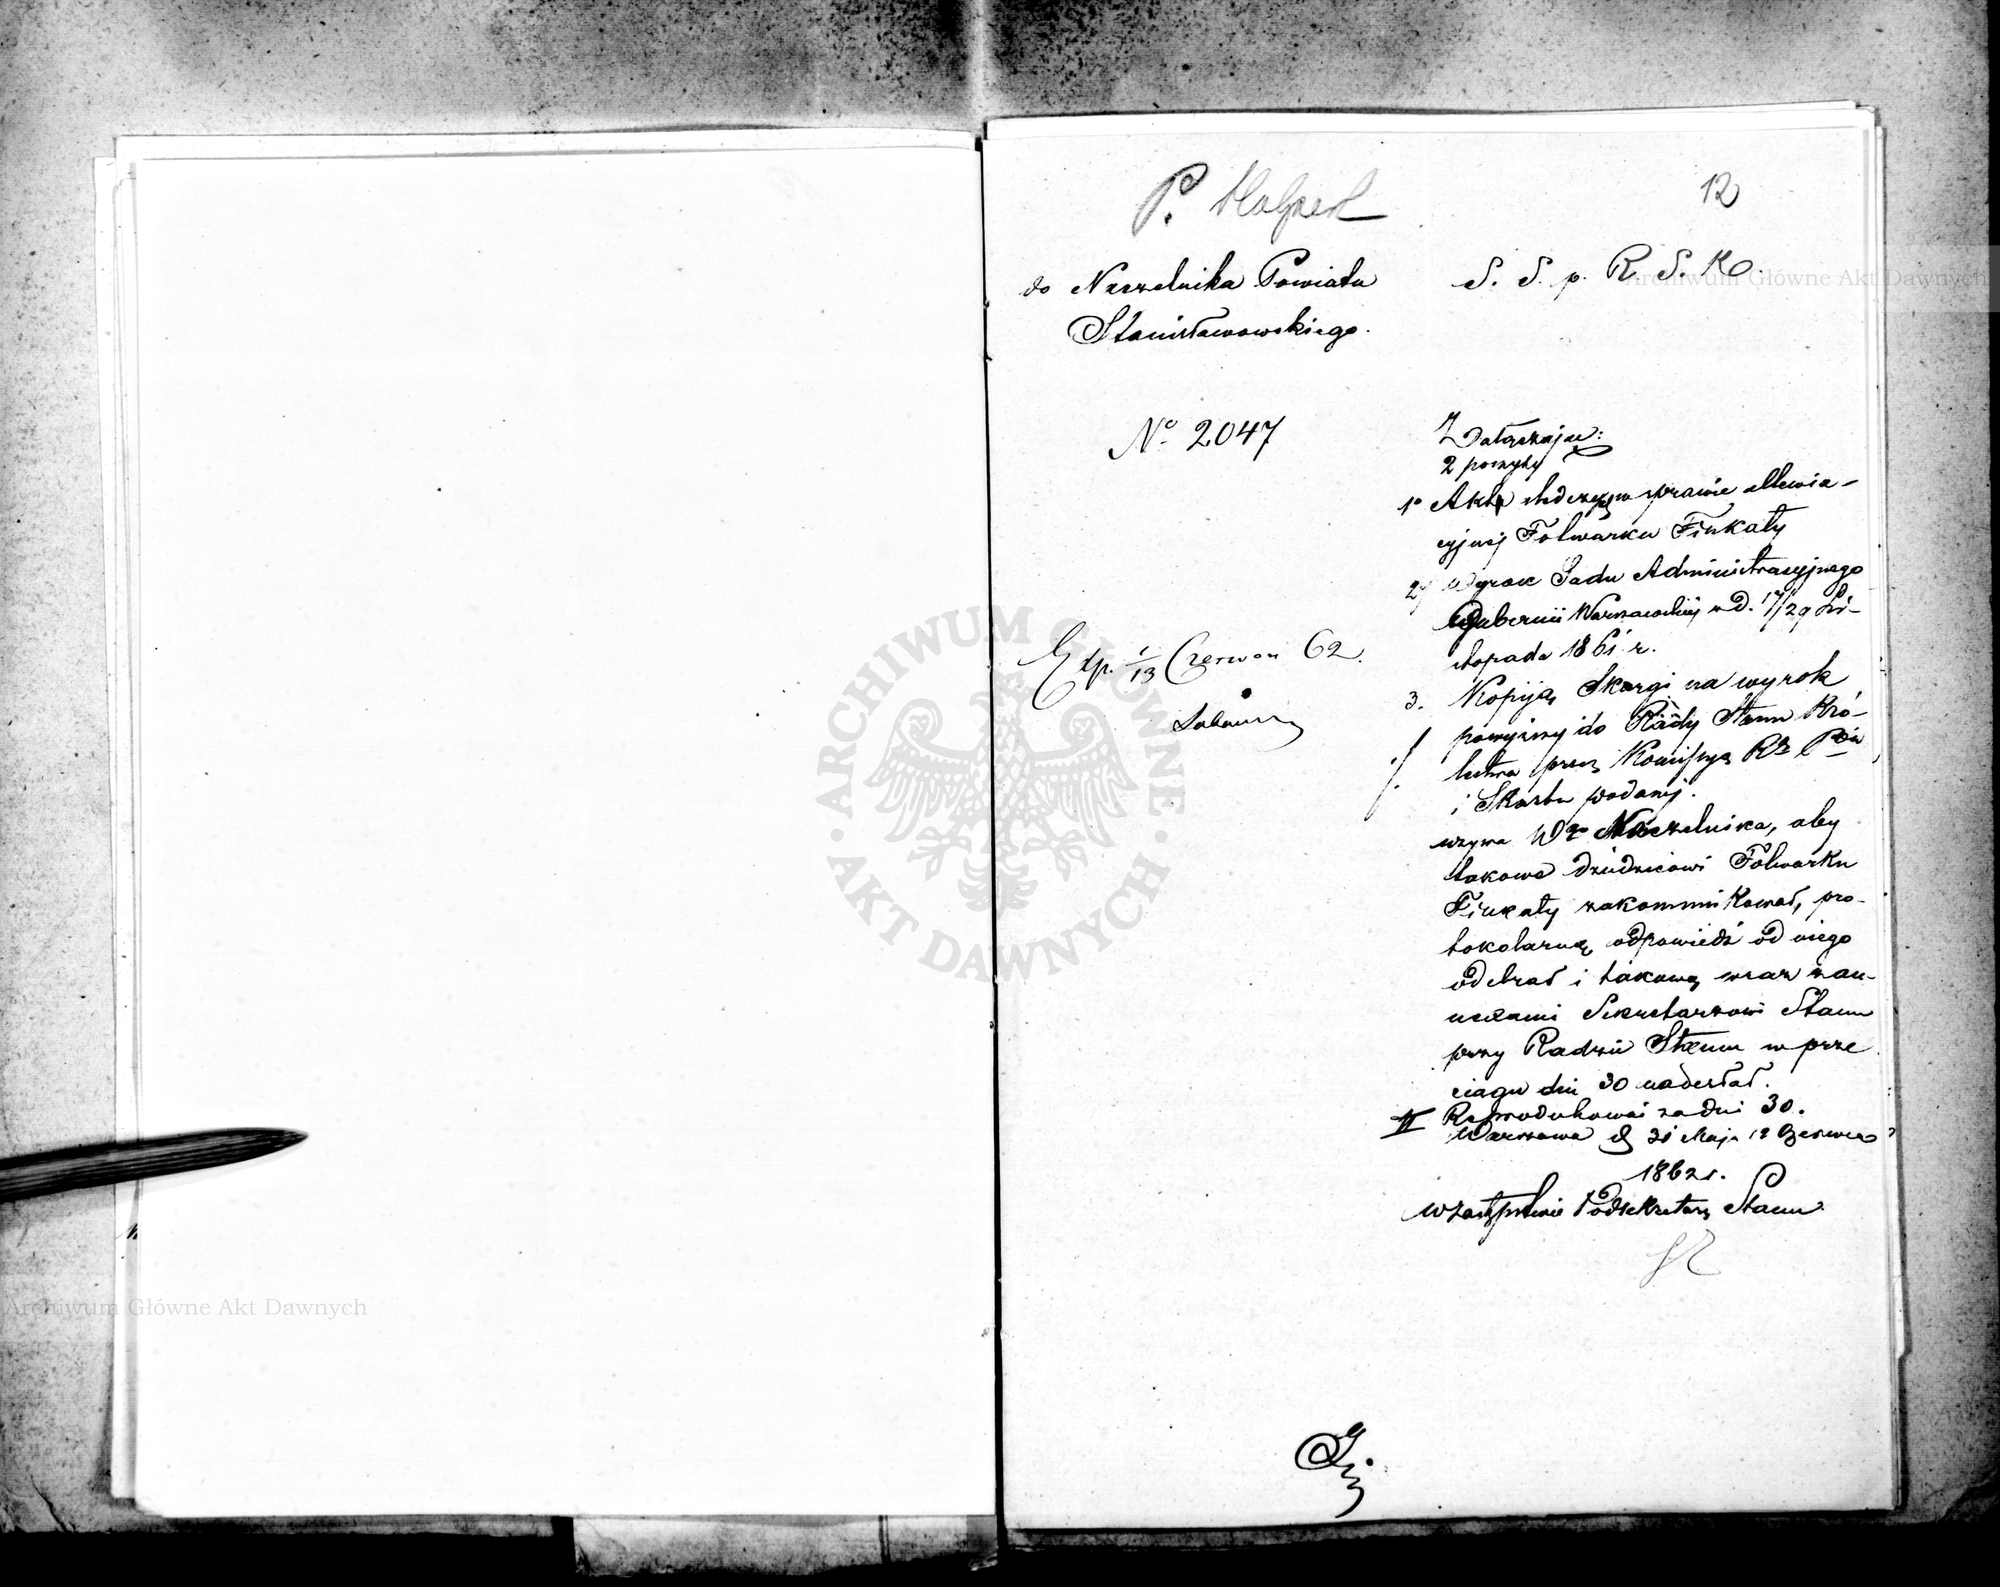 P. Halpert
12
do Naczelnika Powiatu
Stanisławowskiego.
S. S. p. R. S. K.
No 2047
Załączając:
2 poszyty
1o Akta śledcze w sprawie allewia-
cyjnej Folwarku Finkały
2) Wyrok Sądu Administracyjnego
Gubernii Warszawskiej z d. 17/29 Li-
stopada 1861 r.
3. Kopiją Skargi na wyrok
powyższy do Rady Stanu Kró-
lestwa przez Komisyę Rz
i Skarbu podanej.
wzywa Naczelnika, aby
takowe dziedzicowi Folwarku
Finkały zakommunikował, pro-
tokolarną odpowiedź od niego
odebrał i takową wraz z an-
nexami Sekretarzowi Stanu
przy Radzie Stanu w prze
ciągu dni 30 nadesłał.
II Reprodukować za dni 30.
Warszawa d 31 Maja 12 Czerwca
1862 r.
w zastępstwie Podsekretarz Stanu
Exp. 1/13 Czerwca 62.
Archiwum Główne Akt Dawnych
Archiwum Główne Akt Dawnych
ARCHIWUM GŁÓWNE
AKT DAWNYCH